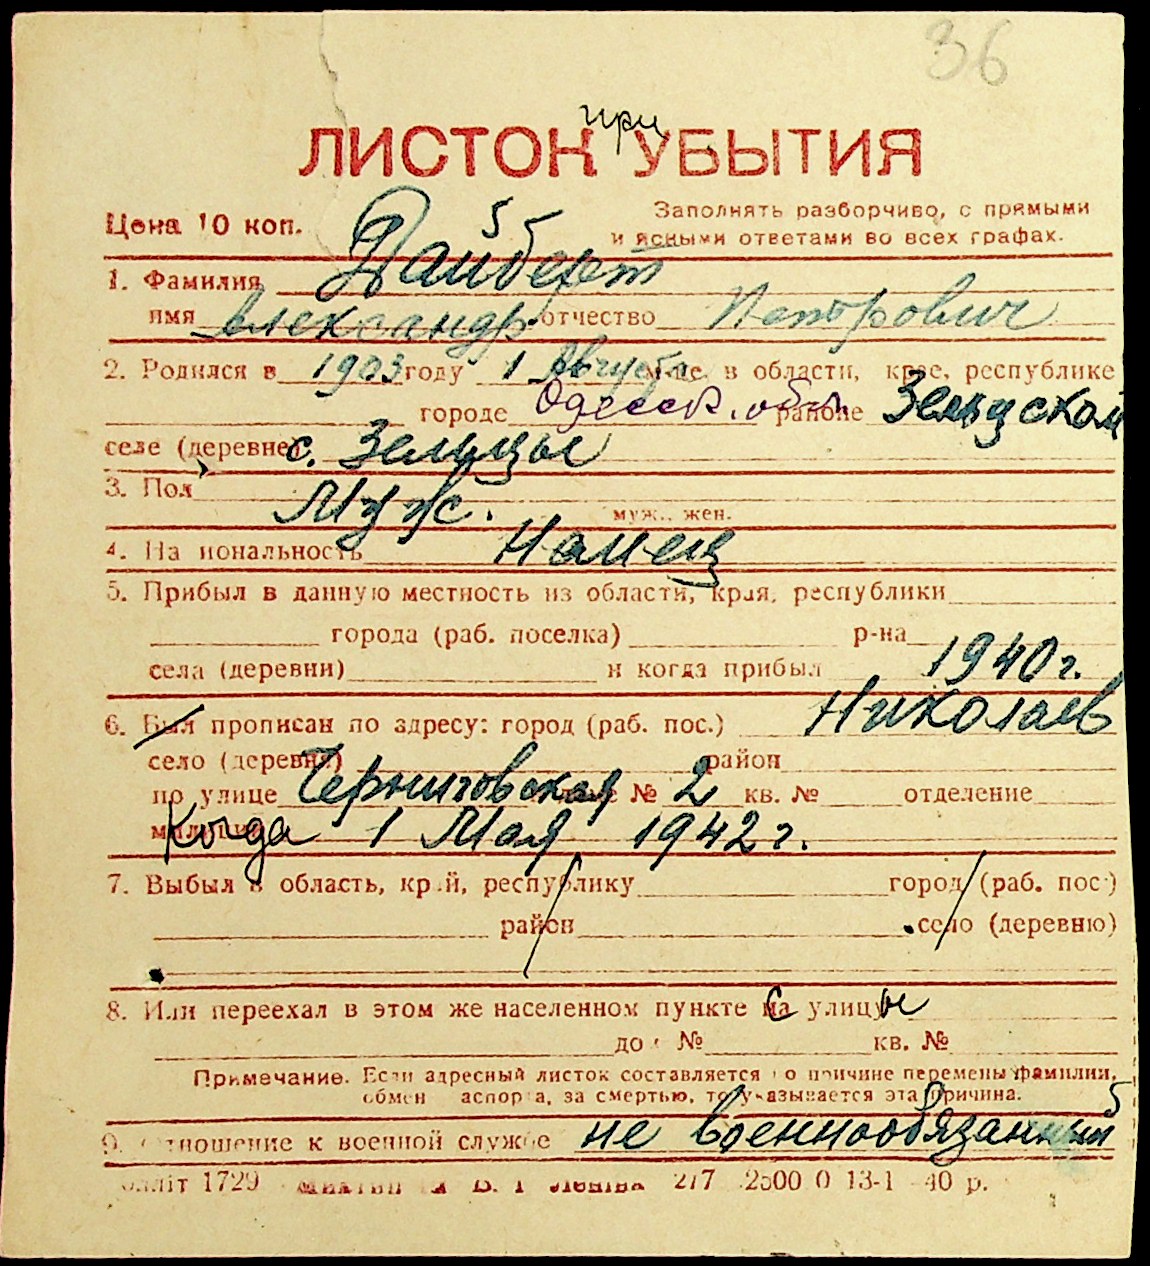 36
ЛИСТОК при УБЫТИЯ
Цена 10 коп.
Заполнять разборчиво, с прямыми
и ясными ответами во всех графах.
1. Фамилия Дайберт
имя Александр отчество Петрович
2. Родился в 1903 году 1 Августа м-це, в области, крае, республике
городе Одесск. обл. районе Зельцском
селе (деревне) с. Зельцы
3. Пол Муж. муж., жен.
4. На иональность Немец
5. Прибыл в данную местность из области, края, республики
города (раб. поселка) р-на
села (деревни) и когда прибыл 1940 г.
6. Был прописан по адресу: город (раб. пос.) Николаев
село (деревня) район
по улице Черниговская доме № 2 кв. № отделение
милиции Когда 1 Мая 1942 г.
7. Выбыл в область, край, республику город (раб. пос.)
район село (деревню)
8. Или переехал в этом же населенном пункте с улицы
до № кв. №
Примечание. Если адресный листок составляется по причине перемены фамилии,
обмен аспорта, за смертью, то указывается эта причина.
9. тношение к военной службе не военнообязанный
1729 Леніна 217 2500 0 13-1 40 р.